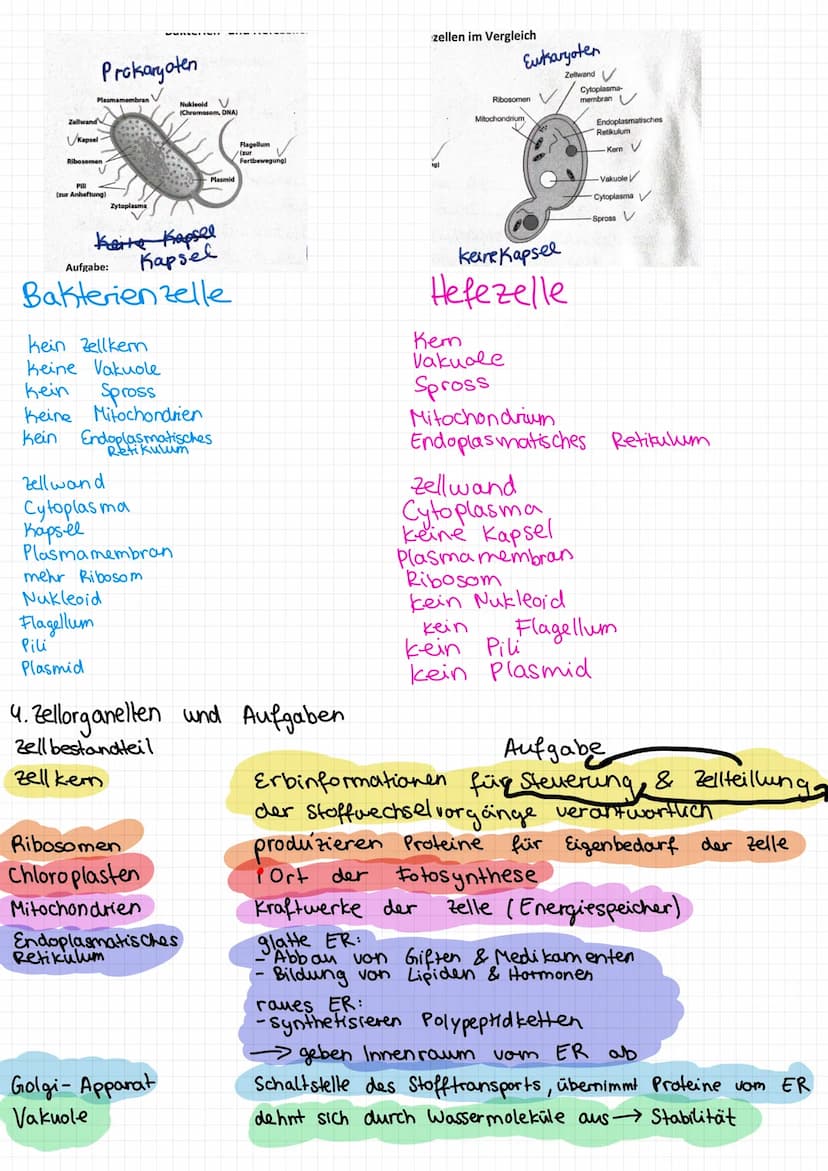 zellen im Vergleich
Prokaryoten
Plasmamembran
Nukleoid
(Chromosom, DNA)
Zellwand
Kapsel
Ribosomen
Flagellum
(zur
Fortbewegung)
Pili
(zur Anheftung)
Plasmid
Zytoplasma
Keine Kapsel
Kapsel
Aufgabe:
Eukaryoten
Zellwand
Cytoplasma-
membran
Ribosomen
Mitochondrium
Endoplasmatisches
Retikulum
Kern
ng)
Vakuole
Cytoplasma
Spross
keine Kapsel
Bakterienzelle
kein Zellkern
keine Vakuole
kein Spross
keine Mitochondrien
kein Endoplasmatisches
Retikulum
Zellwand
Cytoplasma
Kapsel
Plasmamembran
mehr Ribosom
Nukleoid
Flagellum
Pili
Plasmid
Hefezelle
Kern
Vakuole
Spross
Mitochondrium
Endoplasmatisches Retikulum
Zellwand
Cytoplasma
keine Kapsel
Plasmamembran
Ribosom
kein Nukleoid
kein Flagellum
kein Pili
kein Plasmid
4. Zellorganellen und Aufgaben
Zellbestandteil Aufgabe
Zellkern Erbinformationen für Steuerung & Zellteilung
der Stoffwechselvorgänge verantwortlich
Ribosomen produzieren Proteine für Eigenbedarf der Zelle
Chloroplasten Ort der Fotosynthese
Mitochondrien Kraftwerke der Zelle (Energiespeicher)
Endoplasmatisches
Retikulum
glatte ER:
- Abbau von Giften & Medikamenten
- Bildung von Lipiden & Hormonen
raues ER:
- synthetisieren Polypeptidketten
→ geben Innenraum vom ER ab
Golgi-Apparat Schaltstelle des Stofftransports, übernimmt Proteine vom ER
Vakuole dehnt sich durch Wassermoleküle aus → Stabilität